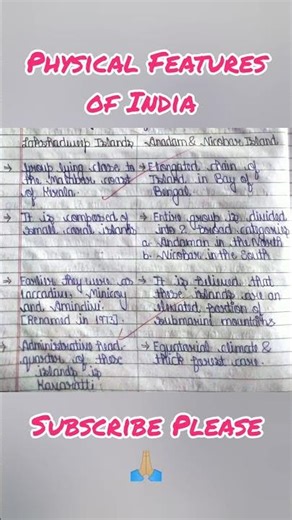 Physical Features
of India
Lakshadweep Islands
Andam & Nicobar Island
→ Group lying close to
the Malabar coast
of Kerala.
→ Elongated chain of
Island in Bay of
Bengal.
→ It is composed of
small coral islands
→ Entire group is divided
into 2 broad categories
a. Andaman in the North
b. Nicobar in the South
→ Earlier they were as
Laccadive, Minicoy
and Amindivi.
[Renamed in 1973]
→ It is believed that
these islands are an
elevated portion of
submarine mountains
→ Administrative head-
quarter of these
islands is
Kavaratti
→ Equatorial climate &
thick forest cover.
Subscribe Please
🙏